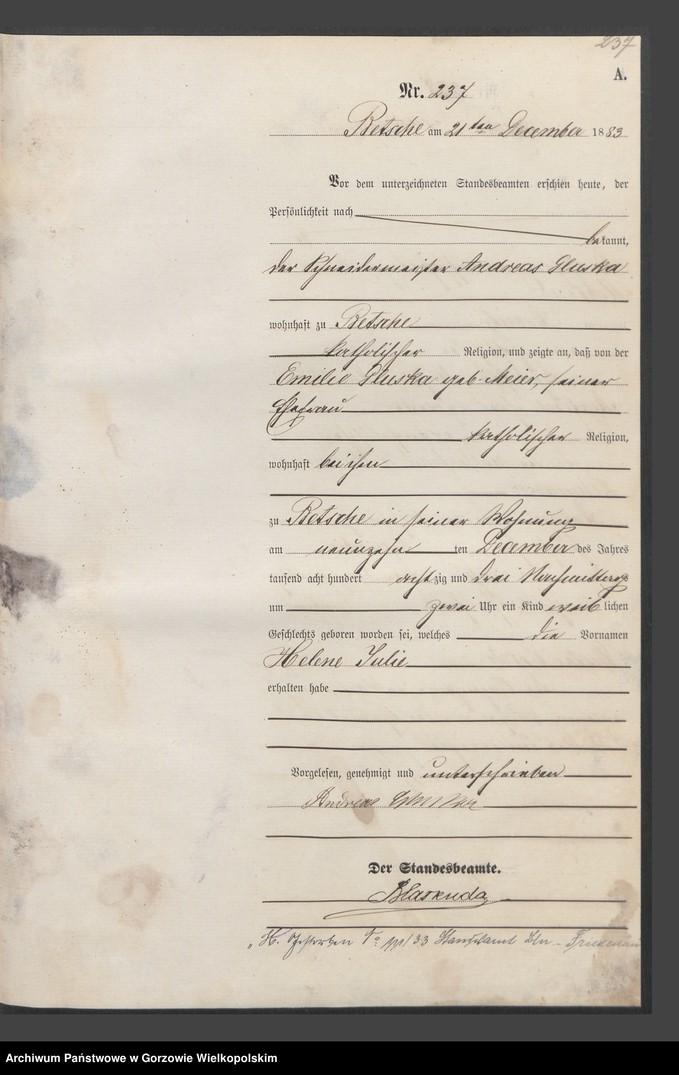 237
A.
Nr. 237
Betsche am 21 ten December 1883
Vor dem unterzeichneten Standesbeamten erschien heute, der
Persönlichkeit nach
bekannt,
der Schneidermeister Andreas Gluska
wohnhaft zu Betsche
katholischer Religion, und zeigte an, daß von der
Emilie Gluska geb. Meier, seiner
Ehefrau
katholischer Religion,
wohnhaft bei ihm
zu Betsche in seiner Wohnung
am neunzehnten December des Jahres
tausend acht hundert achtzig und drei Nachmittags
um zwei Uhr ein Kind weiblichen
Geschlechts geboren worden sei, welches die Vornamen
Helene Julie
erhalten habe
Vorgelesen, genehmigt und unterschrieben
Andreas Gluska
Der Standesbeamte.
H. Gestorben No 33 Standesamt Bln -
Archiwum Państwowe w Gorzowie Wielkopolskim